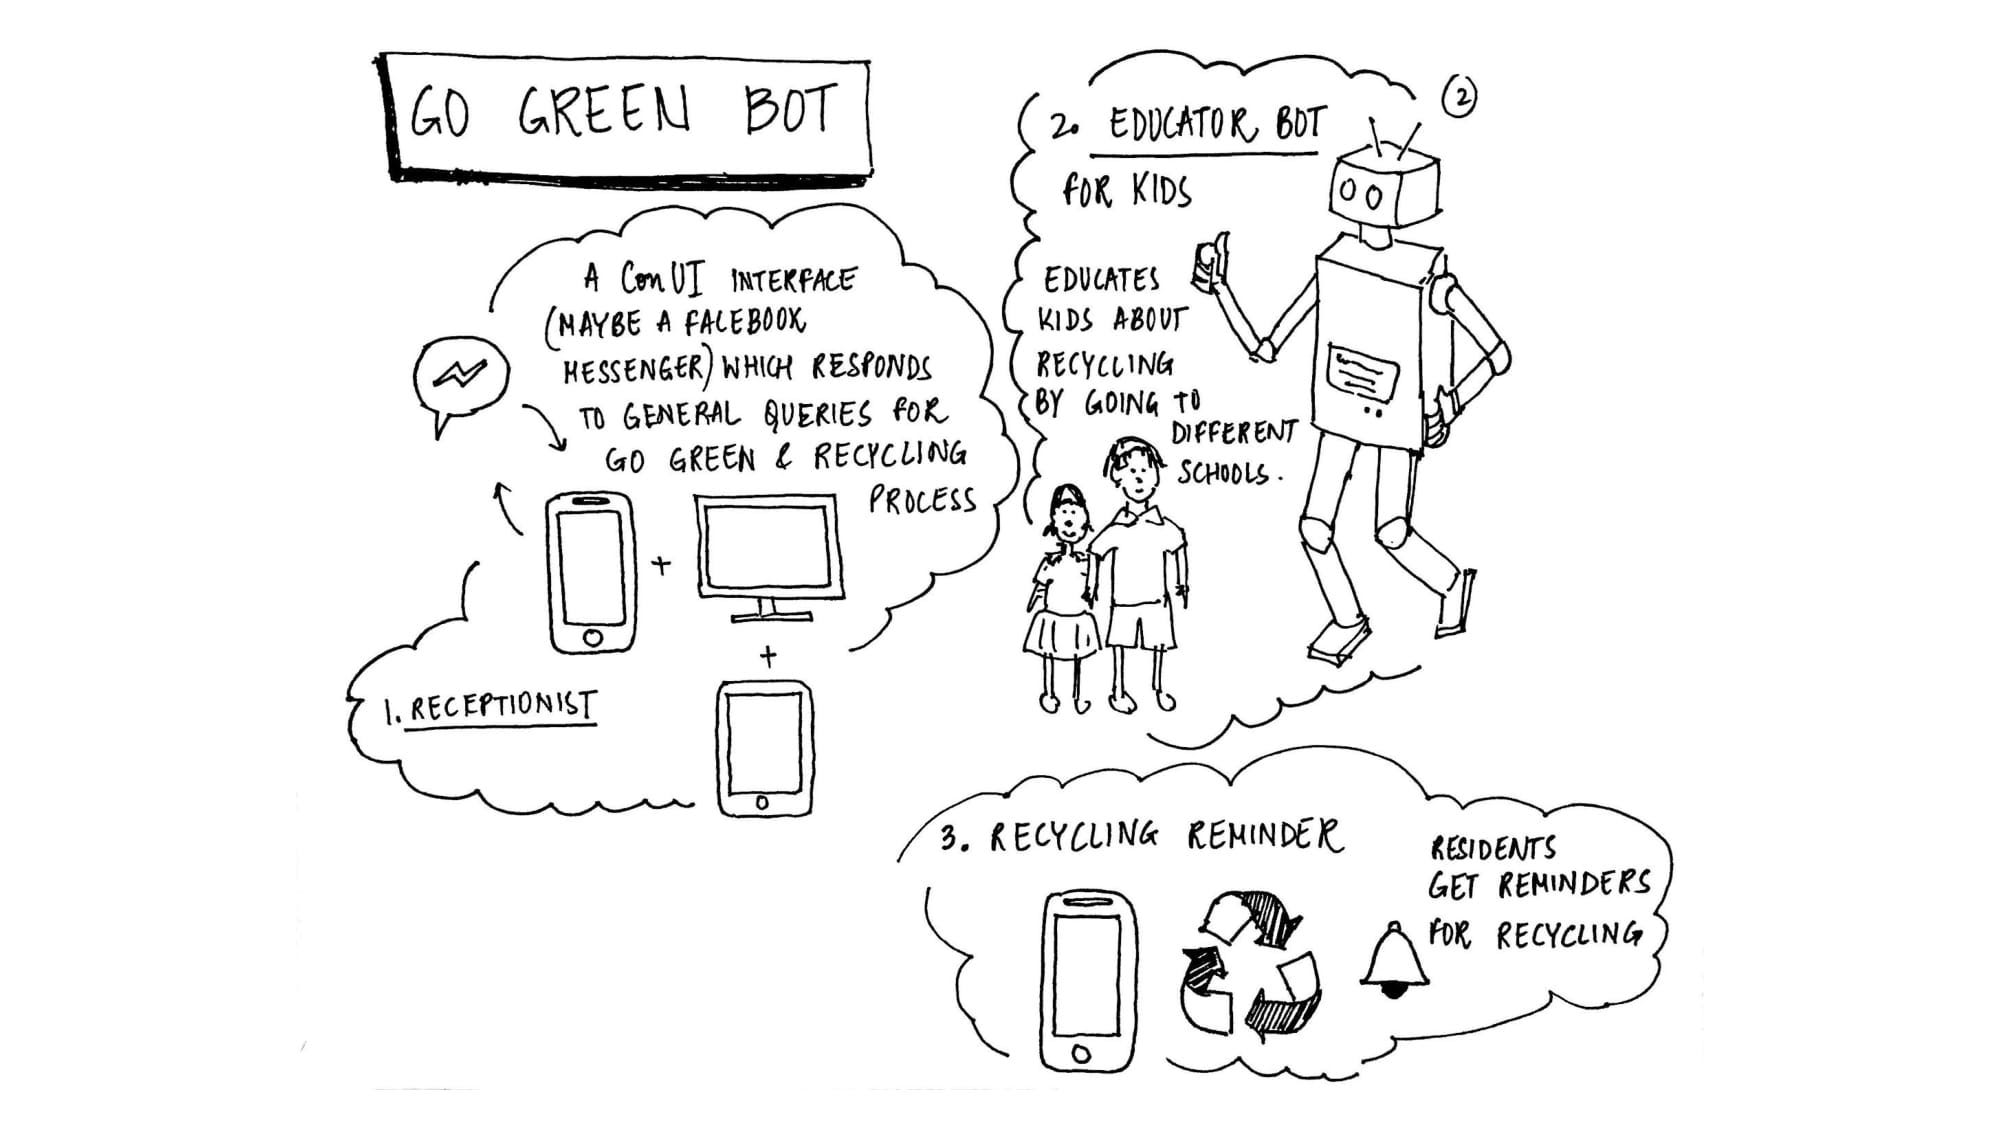 GO GREEN BOT
A ConUI INTERFACE
(MAYBE A FACEBOOK
MESSENGER) WHICH RESPONDS
TO GENERAL QUERIES FOR
GO GREEN & RECYCLING
PROCESS
1. RECEPTIONIST
2
2. EDUCATOR BOT
FOR KIDS
EDUCATES
KIDS ABOUT
RECYCLING
BY GOING TO
DIFFERENT
SCHOOLS.
3. RECYCLING REMINDER
RESIDENTS
GET REMINDERS
FOR RECYCLING